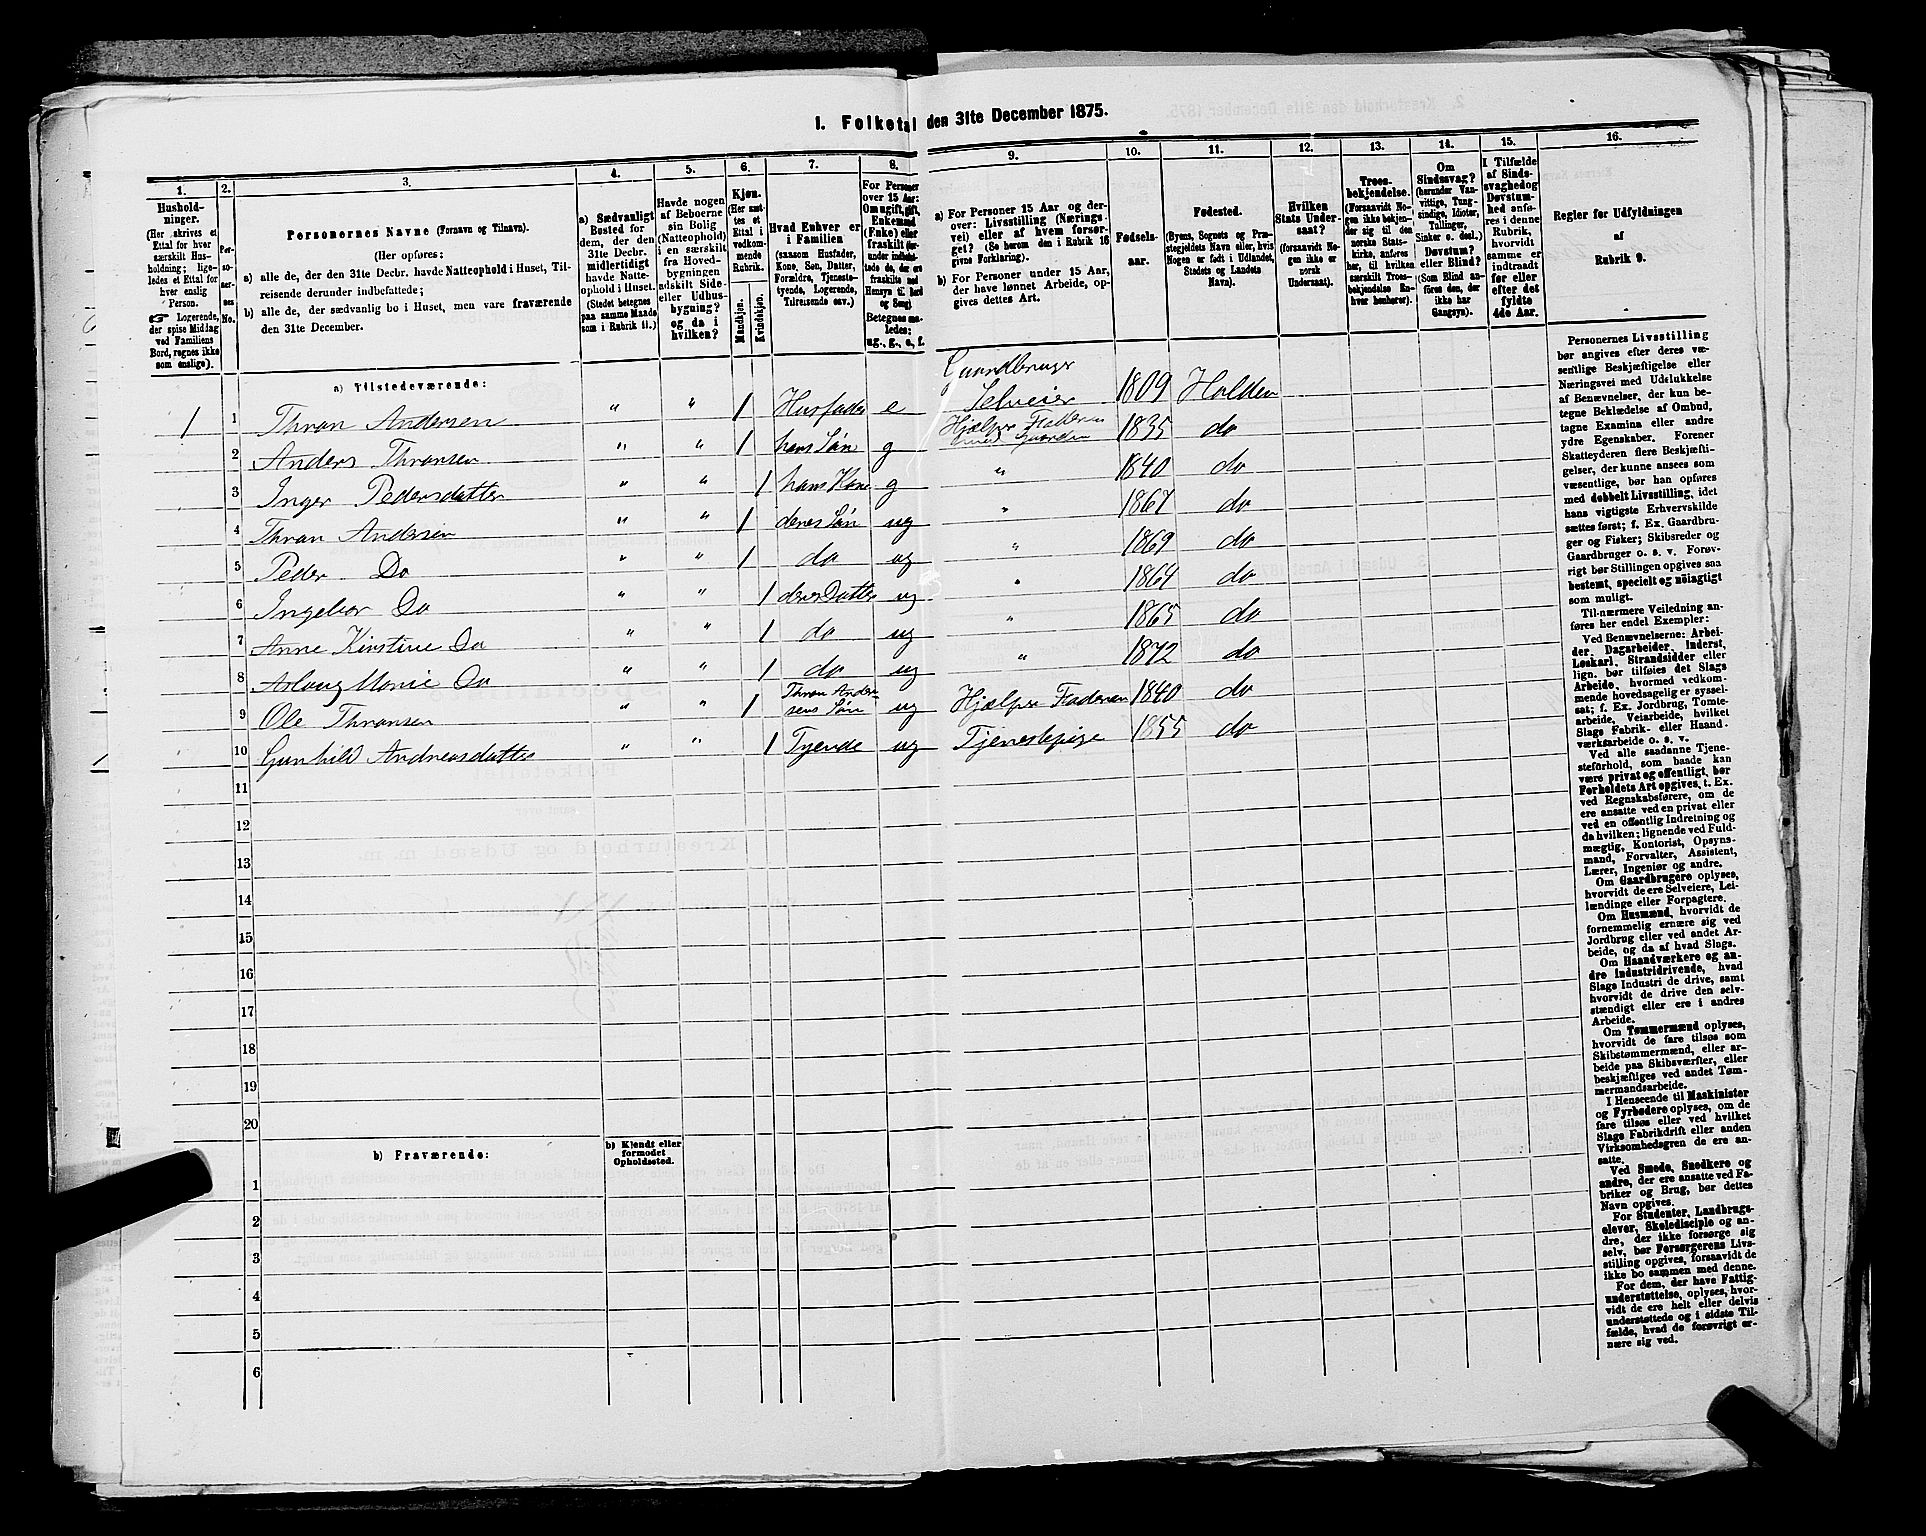 I. Folketal den 31te December 1875.
1.
Hushold-
ninger.
(Her skrives et
Ettal for hver
særskilt Hus-
holdning; lige-
ledes et Ettal for
hver enslig
Person.
☞ Logerende,
der spise Middag
ved Familiens
Bord, regnes ikke
som enslige).
2.
Per-
so-
ner-
nes
No.
3.
Personernes Navne (Fornavn og Tilnavn).
(Her opføres:
a) alle de, der den 31te Decbr. havde Natteophold i Huset, Til-
reisende derunder indbefattede;
b) alle de, der sædvanlig bo i Huset, men vare fraværende
den 31te December.
4.
a) Sædvanligt
Bosted for
dem, der den
31te Decbr.
midlertidigt
havde Natte-
ophold i Huset.
(Stedet betegnes
paa samme Maade
som i Rubrik 11.)
5.
Havde nogen
af Beboerne
sin Bolig
(Natteophold)
i en særskilt
fra Hoved-
bygningen
adskilt Side-
eller Udhus-
bygning?
og da i
hvilken?
6.
Kjøn.
(Her sæt-
tes et
Ettal i
vedkom-
mende
Rubrik.
Mandkjøn.
Kvindekjøn.
7.
Hvad Enhver er
i Familien
(saasom Husfader,
Kone, Søn, Datter,
Forældre, Tjeneste-
tyende, Logerende,
Tilreisende osv.)
8.
For Personer
over 15 Aar:
Om ugift, gift,
Enkemand
(Enke) eller
fraskilt (for-
Betegnes saa-
ledes:
ug., g., e., f.
9.
a) For Personer 15 Aar og der-
over: Livsstilling (Nærings-
vei) eller af hvem forsør-
get? (Se herom den i Rubrik 16
givne Forklaring).
b) For Personer under 15 Aar,
der have lønnet Arbeide, op-
gives dettes Art.
10.
Fødsels-
aar.
11.
Fødested.
(Byens, Sognets og Præ-
stegjeldets Navn eller, hvis
Nogen er født i Udlandet,
Stedets og Landets
Navn).
12.
Hvilken
Stats Under-
saat?
(forsaavidt No-
gen ikke er
norsk
Undersaat).
13.
Troes-
bekjendelse.
(Forsaavidt No-
gen ikke bekjen-
der sig til den
norske Stats-
kirke, anføres
her, til hvilken
særskilt Troes-
bekjendelse En-
hver henhører).
14.
Om
Sindssvag?
(herunder Van-
vittige, Tung-
sindige, Idioter,
Tullinger,
Sinker o. desl.)
Døvstum?
eller Blind?
(Som Blind an-
føres den, der
ikke har
Gangsyn).
15.
I Tilfælde
af Sinds-
svaghed og
Døvstum-
hed anfø-
res i denne
Rubrik,
hvorvidt
samme er
indtraadt
før eller
efter det
fyldte
4de Aar.
16.
Regler for Udfyldningen
af
Rubrik 9.
a) Tilstedeværende:
1 1 Thron Andersen " " 1 Husfader e Gaardbruger Selveier 1809 Holden
2 Anders Thronsen " " 1 hans Søn g Hjælper Faderen med Gaarden 1835 do
3 Inger Pedersdatter " " 1 hans Kone g " 1840 do
4 Thron Andersen " " 1 deres Søn ug " 1867 do
5 Peder Do " " 1 do ug " 1869 do
6 Ingebor Do " " 1 deres Datter ug " 1864 do
7 Anne Kirstine Do " " 1 do ug " 1865 do
8 Aslaug Marie Do " " 1 do ug " 1872 do
9 Ole Thronsen " " 1 Thron Andersens Søn ug Hjælper Faderen 1840 do
10 Gunhild Andreasdatter " " 1 Tyende ug Tjenestepige 1855 do
11
12
13
14
15
16
17
18
19
20
b) Fraværende:
b) Kjendt eller
formodet
Opholdssted.
1
2
3
4
5
6
Personernes Livsstilling
bør angives efter deres væ-
sentlige Beskjæftigelse eller
Næringsvei med Udelukkelse
af Benævnelser, der kun be-
tegne Beklædelse af Ombud,
tagne Examina eller andre
ydre Egenskaber. Forener
Skatteyderen flere Beskjæfti-
gelser, der kunne ansees som
væsentlige, bør han opføres
med dobbelt Livsstilling, idet
hans vigtigste Erhvervskilde
sættes først; f. Ex. Gaardbru-
ger og Fisker; Skibsreder og
Gaardbruger o. s. v. Forøv-
rigt bør Stillingen opgives saa
bestemt, specielt og nøiagtigt
som muligt.
Til nærmere Veiledning an-
føres her endel Exempler:
Ved Benævnelserne: Arbei-
der, Dagarbeider, Inderst,
Løskarl, Strandsidder eller
lign. bør tilføies det Slags
Arbeide, hvormed vedkom-
mende hovedsagelig er syssel-
sat; f. Ex. Jordbrug, Tomte-
arbeide, Veiarbeide, hvilket
Slags Fabrik- eller Haand-
værksarbeide o. s. v.
Ved alle saadanne Tjene-
steforhold, som baade kan
være privat og offentligt, bør
Forholdets Art opgives, t. Ex.
ved Regnskabsførere, om de
ere ansatte ved en privat eller
ved en offentlig Indretning og
da hvilken; lignende ved Fuld-
mægtig, Kontorist, Opsyns-
mand, Forvalter, Assistent,
Lærer, Ingeniør og andre.
Om Gaardbrugere oplyses,
hvorvidt de ere Selveiere, Lei-
lændinge eller Forpagtere.
Om Husmænd, hvorvidt de
fornemmelig ernære sig ved
Jordbrug eller ved andet Ar-
beide, og da af hvad Slags.
Om Haandværkere og an-
dre Industridrivende, hvad
Slags Industri de drive, samt
hvorvidt de drive den selv-
stændigt eller ere i andres
Arbeide.
Om Tømmermænd oplyses,
hvorvidt de fare tilsøs som
Skibstømmermænd, eller ar-
beide paa Skibsværfter, eller
beskjæftiges ved andet Tøm-
mermandsarbeide.
I Henseende til Maskinister
og Fyrbødere oplyses, om de
fare tilsøs eller ved hvilket
Slags Fabrikdrift eller anden
Virksomhedsgren de ere an-
satte.
Ved Smede, Snedkere og
andre, der ere ansatte ved Fa-
briker og Brug, bør dettes
Navn opgives.
For Studenter, Landbrugs-
elever, Skoledisciple og an-
dre, der ikke forsørge sig
selv, bør Forsørgerens Livs-
stilling opgives, forsaavidt de
ikke bo sammen med denne.
For dem, der have Fattig-
understøttelse, oplyses, hvor-
vidt de ere helt eller delvis
understøttede og i sidste Til-
fælde, hvad de forøvrigt er-
nære sig ved.